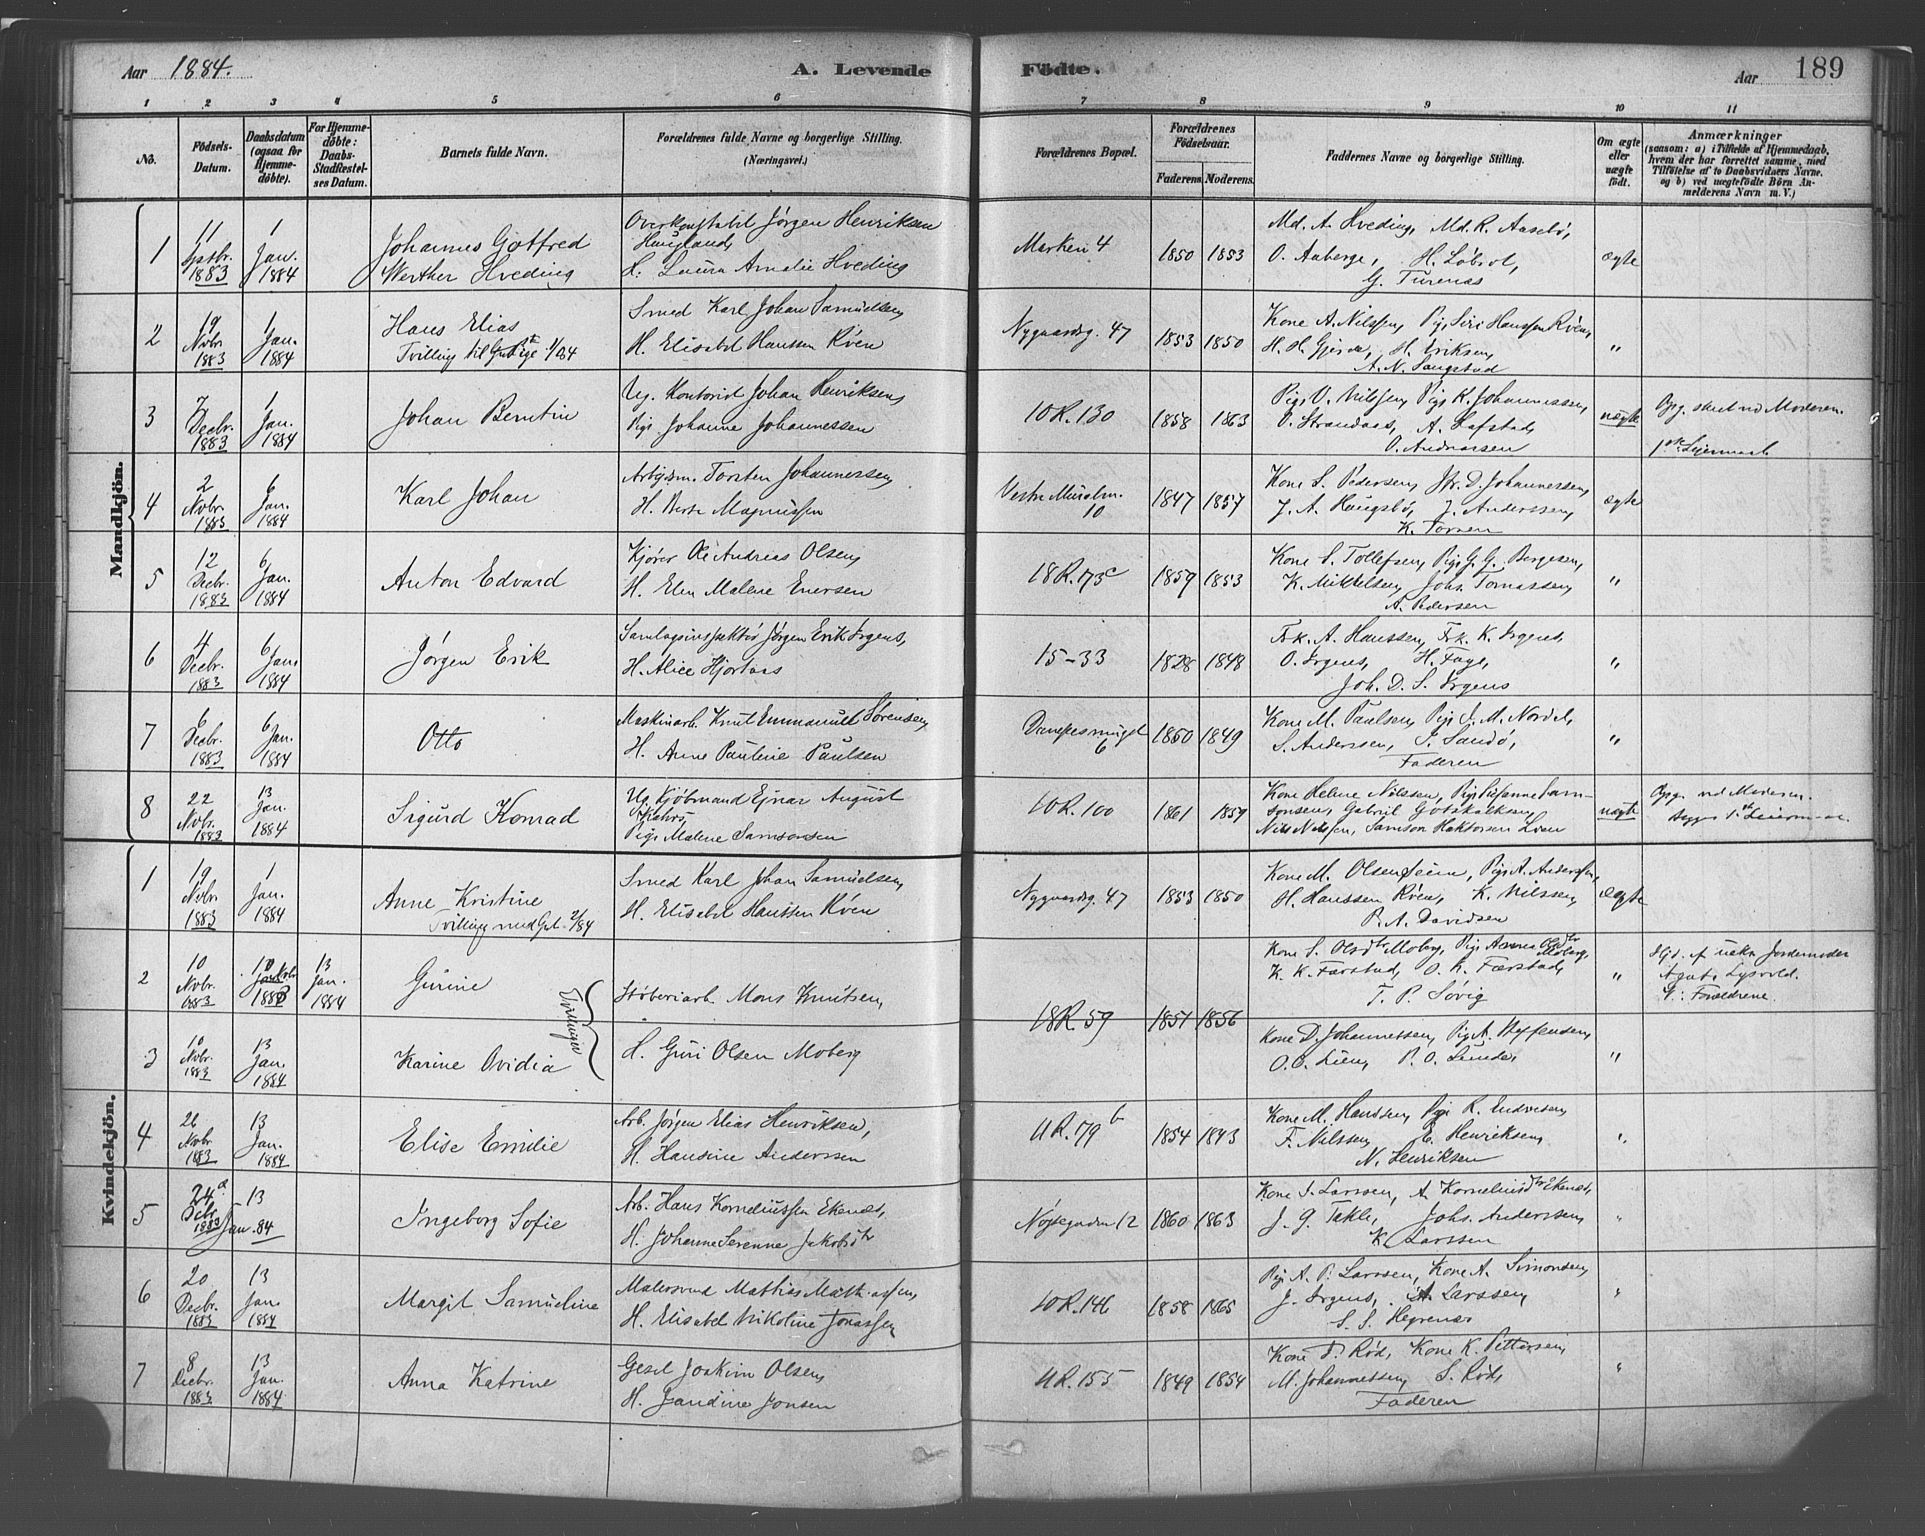 Aar 1884.
A. Levende Födte.
Aar 189
1 2 3 4 5 6 7 8 9 10 11
No.
Födsels-Datum.
Daabsdatum (ogsaa for Hjemme-döbte).
For Hjemme-döbte: Daabs-Stadfæstel-ses Datum.
Barnets fulde Navn.
Forældrenes fulde Navne og borgerlige Stilling.
(Næringsvei.)
Forældrenes Bopæl.
Forældrenes Födselsaar.
Faderens Moderens
Faddernes Navne og borgerlige Stilling.
Om ægte eller uægte födt.
Anmærkninger
(saasom: a) i Tilfælde af Hjemmedaab,
hvem der har forrettet samme, med
Tilföielse af to Daabsvidners Navne,
og b) ved uægtefödte Börn An-
melderens Navn m. V.)
Mandkjön.
1 11 1883 1 Jan. 1884 Johannes Gotfred
Werther Hveding
Overkonstabel Jørgen Henriksen
Haugland,
H. Laura Amalie Hveding
Marken 4 1850 1853
Md. A. Hveding, Md. R. Aasebø,
O. Aaberge,
ægte
2 19 Nvbr. 1883 1 Jan. 1884 Hans Elias
Tvilling til
Smed Karl Johan Samuelsen,
H. Elisabet Hanssen Kven
Nygaardsg. 47 1853 1850
Kone A. Nilssen, Pige Siri Hanssen
H. H. Gjerde, H. Eriksen,
"
3 7 Decbr. 1883 1 Jan. 1884 Johan Berntin
Ug. Kontorist Johan Henriksen,
Pige Johanne Johannessen
10 R. 130 1858 1863
Pige O. Nilssen, Pige K. Johannessen,
O. Andreassen
uægte
4 2 Nvbr. 1883 6 Jan. 1884 Karl Johan
Arbgdsm. Torsten Johannessen,
H. Berte Magnussen
10 1847 1857
Kone S. Pedersen, D. Johannessen,
J. A. Haugsbø, J. Anderssen,
ægte
5 12 Decbr. 1883 6 Jan. 1884 Anton Edvard
Kjører Ole Andreas Olsen,
H. Elen Malene Enersen
18 R. 73 c 1857 1853
Kone S. Tollefsen, Pige G. G. Bergesen,
K. Mikkelsen, Johs. Tomassen,
A. Pedersen
"
6 4 Decbr. 1883 6 Jan. 1884 Jørgen Erik
Samlagsinspektør Jørgen Erik Irgens,
H. Alice Hjortaas
15-33 1828 1848
Frk. A. Hanssen, Frk. K. Irgens,
O. Irgens,
Joh. D. S. Irgens
"
7 6 Decbr. 1883 6 Jan. 1884 Otto
Maskinarb. Knut Emmanuel Sørensen,
H. Anne Pauline Paulsen
6 1860 1849
Kone M. Paulsen, Pige
S. Anderssen, S. Sandø,
Faderen
"
8 22 Nvbr. 1883 13 Jan. 1884 Sigurd Konrad
Ug. Kjøbmand Ejnar August
Pige Malene Samsonsen
10 R. 100 1861 1859
Kone Helene Nilssen, Pige Susanne Sam-
sonsen, Gabriel Gotskalksen,
Nils Nilssen, Samson
uægte
Kvindekjön.
1 19 Nvbr. 1883 1 Jan. 1884 Anne Kristine
Tvilling med 2/84
Smed Karl Johan Samuelsen,
H. Elisabet Hanssen Kven
Nygaardsg. 47 1853 1850
Kone M. Olsen Pige A. Andersen,
H. Hanssen Kven, K. Nilssen,
P. A. Davidsen
ægte
2 10 Nvbr. 1883 13 Jan. 1884 Gurine
Støberiarb. Mons Knutsen,
18 R. 59 1851 1856
K. K. Farstad, O. K. Færstad,
T. P. Søvig
"
Forældrene.
Tvillinger
3 10 Nvbr. 1883 13 Jan. 1884 Karine Ovidia
H. Guri Olsen Moberg
Kone D. Johannessen, Pige A. Steffensen,
O. O. Lien, P. O. Lunde,
"
4 26 Nvbr. 1883 13 Jan. 1884 Elise Emilie
Arb. Jørgen Elias Henriksen,
H. Hansine Anderssen
11 R. 79 b 1854 1843
Kone M. Hansen, Pige R. Endresen,
F. Nilssen, E. Henriksen,
N. Henriksen
"
5 24 Decbr. 1883 13 Jan. 84 Ingeborg Sofie
Arb. Hans Korneliussen Ekenæs,
H. Johanne Serenne Jakobsdtr
12 1860 1863
Kone S. Larssen, A. Korneliusdtr Ekenæs,
J. G. Takle, Johs. Anderssen,
K. Larssen
"
6 20 Decbr. 1883 13 Jan. 1884 Margit Samueline
Malersvend Mathias Mathiassen,
H. Elisabet Nikoline Jonassen
10 R. 146 1858 1865
Pige A. P. Larssen, Kone A. Simonsen,
J. Irgens, A. Larssen,
"
7 8 Decbr. 1883 13 Jan. 1884 Anna Katrine
Gesel Joakim Olsen,
H. Jandine Jonsen
11 R. 155 1849 1854
Kone P. Rød, Kone K. Pettersen,
M. Johannessen, S. Rød,
Faderen
"